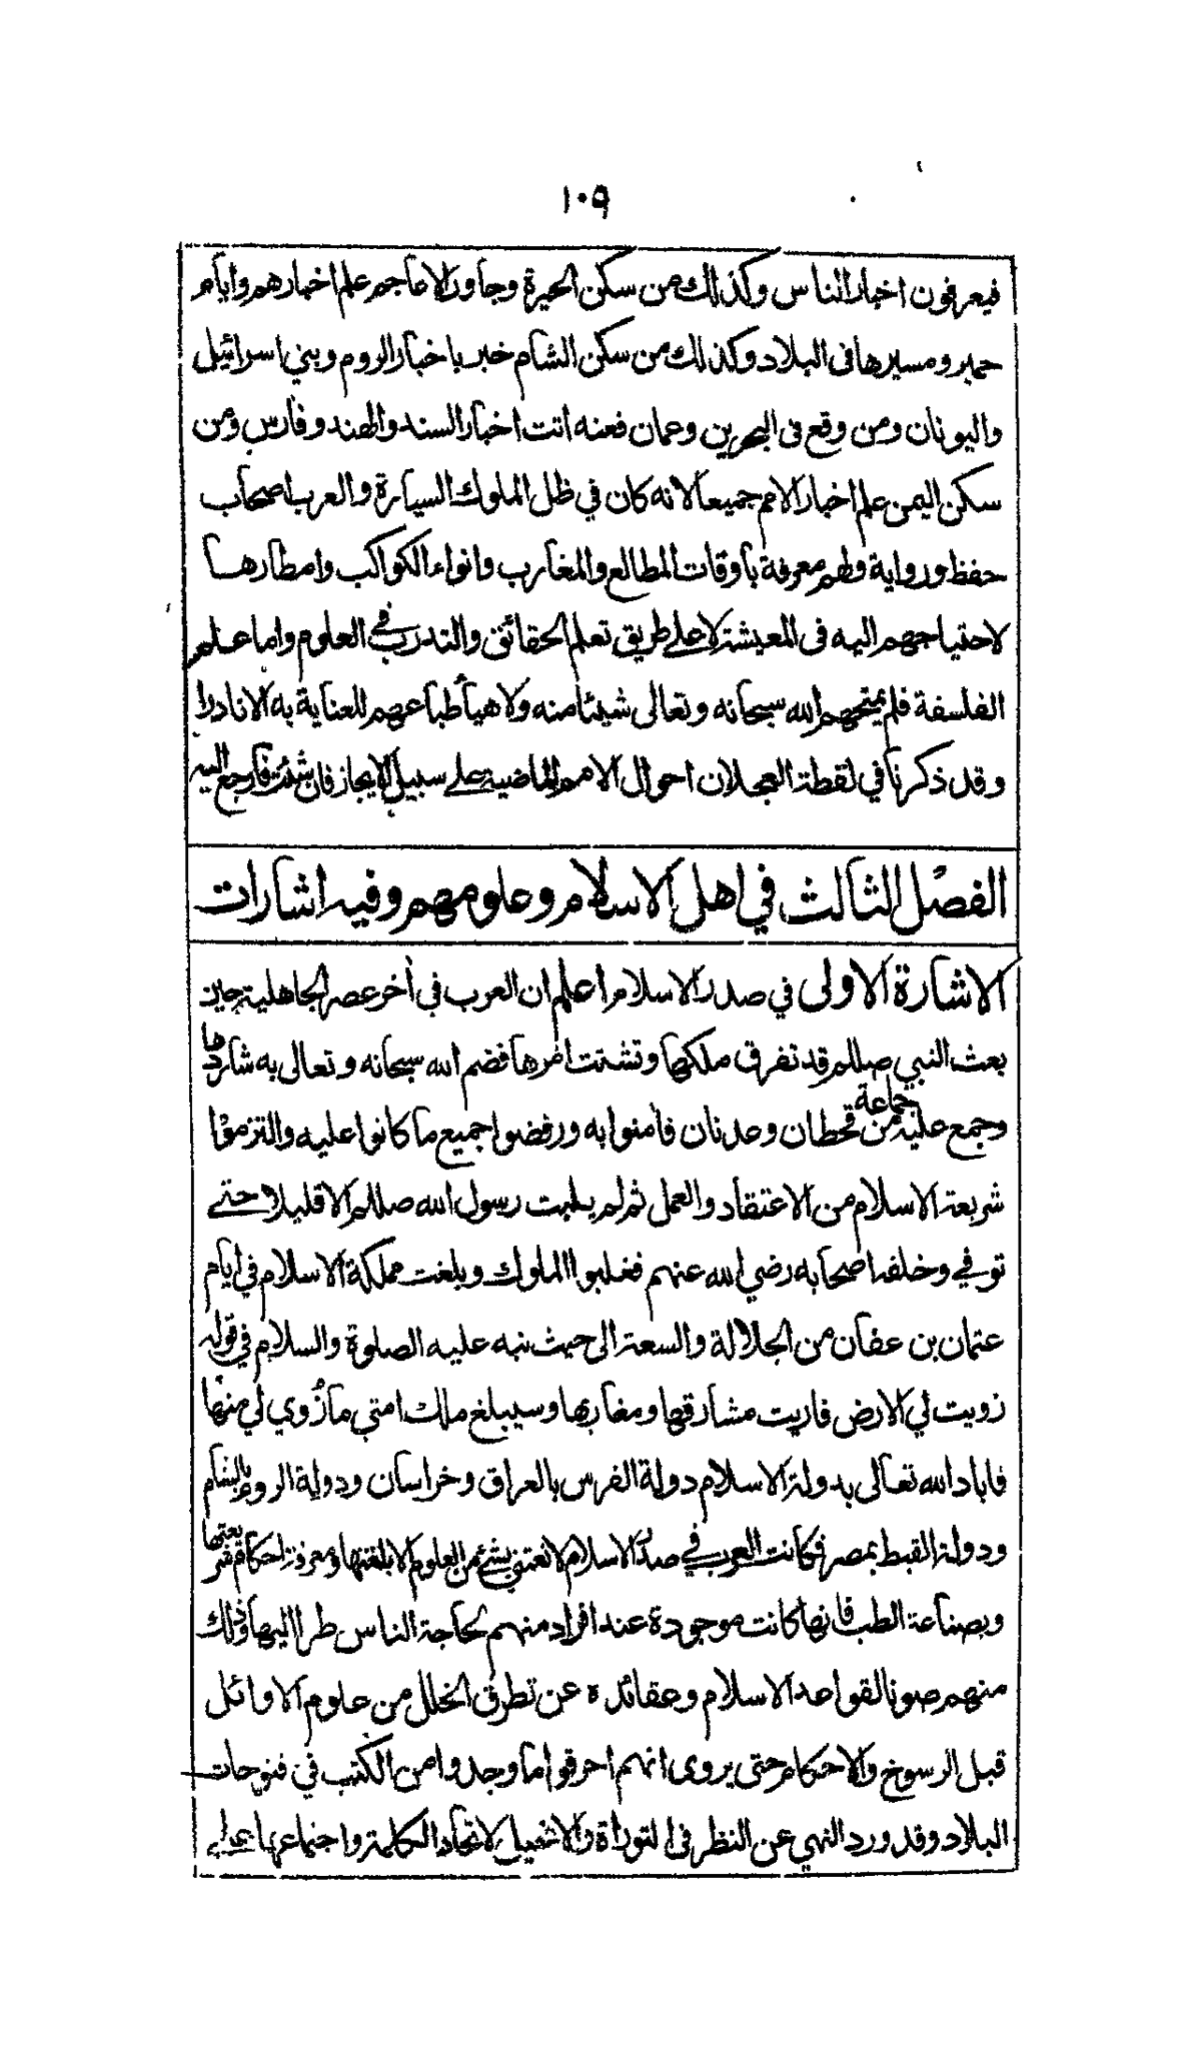 ١٠٩
فيعرفون اخبار الناس وكذلك من سكن الحيرة وجاور الاعاجم علم اخبارهم وايام
حمير ومسيرها فى البلاد وكذلك من سكن الشام خبر باخبار الروم وبني اسرائيل
واليونان ومن وقع فى البحرين وعمان فعنه اتت اخبار السند والهند وفارس ومن
سكن اليمن علم اخبار الامم جميعا لانه كان في ظل الملوك السيارة والعرب اصحاب
حفظ ورواية ولهم معرفة باوقات المطالع والمغارب وانواء الكواكب وامطارها
لاحتياجهم اليه فى المعيشة لا على طريق تعلم الحقائق والتدرب في العلوم واما علم
الفلسفة فلم يمنحهم الله سبحانه وتعالى شيئا منه ولا هيأ طباعهم للعناية به الا نادرا
وقد ذكرنا في لقطة العجلان احوال الامم الماضية على سبيل الايجاز فان شئت فارجع اليه
الفصل الثالث في اهل الاسلام وعلومهم وفيه اشارات
الاشارة الاولى في صدر الاسلام اعلم ان العرب في أخر عصر الجاهلية حين
بعث النبي صللم قد تفرق ملكها وتشتت امرها فضم الله سبحانه وتعالى به شاردها
وجمع عليه جماعة من قحطان وعدنان فأمنوا به ورفضوا جميع ما كانوا عليه والتزموا
شريعة الاسلام من الاعتقاد والعمل ثم لم يلبث رسول الله صللم الا قليلا حتى
توفي وخلفه اصحابه رضي الله عنهم فغلبوا الملوك وبلغت مملكة الاسلام في ايام
عثمان بن عفان من الجلالة والسعة الى حيث نبه عليه الصلوة والسلام في قوله
زويت لي الارض فاريت مشارقها ومغاربها وسيبلغ ملك امتي ما زُوي لي منها
فاباد الله تعالى بدولة الاسلام دولة الفرس بالعراق وخراسان ودولة الروم بالشام
ودولة القبط بمصر فكانت العرب في صدر الاسلام لا تعتني بشئ من العلوم الا بلغتها ومعرفة احكام شريعتها
وبصناعة الطب فانها كانت موجودة عند افراد منهم لحاجة الناس طرا اليها وذلك
منهم صونا لقواعد الاسلام وعقائده عن تطرق الخلل من علوم الاوائل
قبل الرسوخ والاحكام حتى يروى انهم احرقوا ما وجدوا من الكتب في فتوحات
البلاد وقد ورد النهي عن النظر فى التوراة والانجيل لاتحاد الكلمة واجتماعها